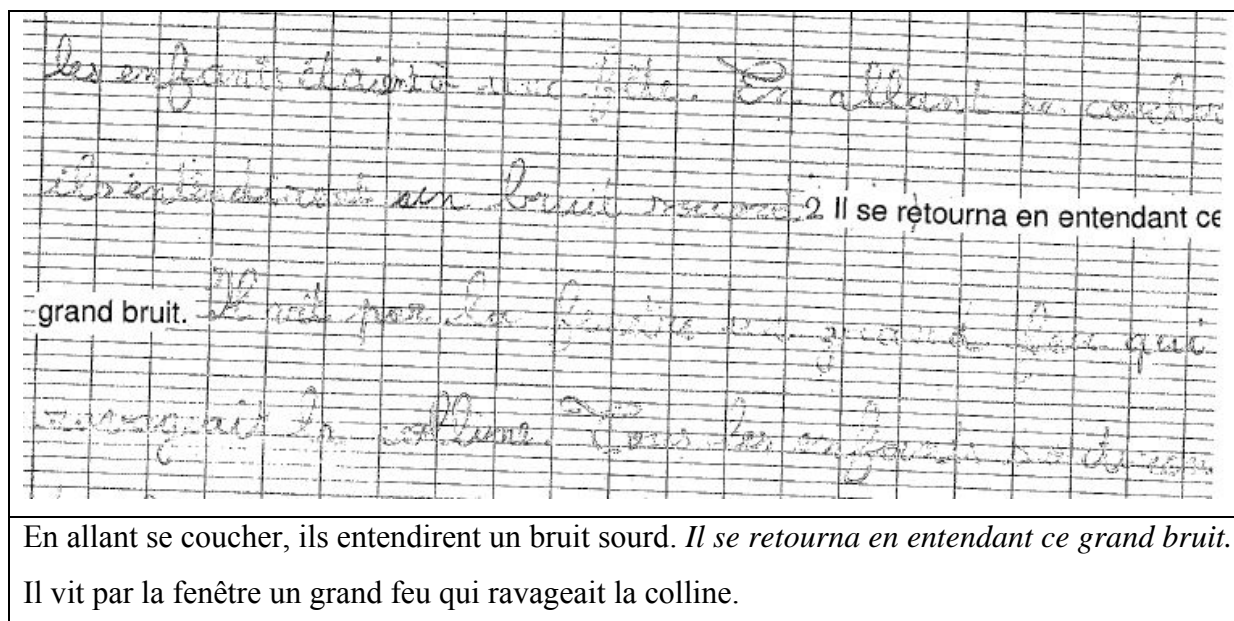 les enfants étaient à une fête. En allant se coucher
ils entendirent un bruit sourd 2 Il se retourna en entendant ce
grand bruit. Il vit par la fenêtre un grand feu qui
ravageait la colline. Tous les enfants
En allant se coucher, ils entendirent un bruit sourd. Il se retourna en entendant ce grand bruit.
Il vit par la fenêtre un grand feu qui ravageait la colline.